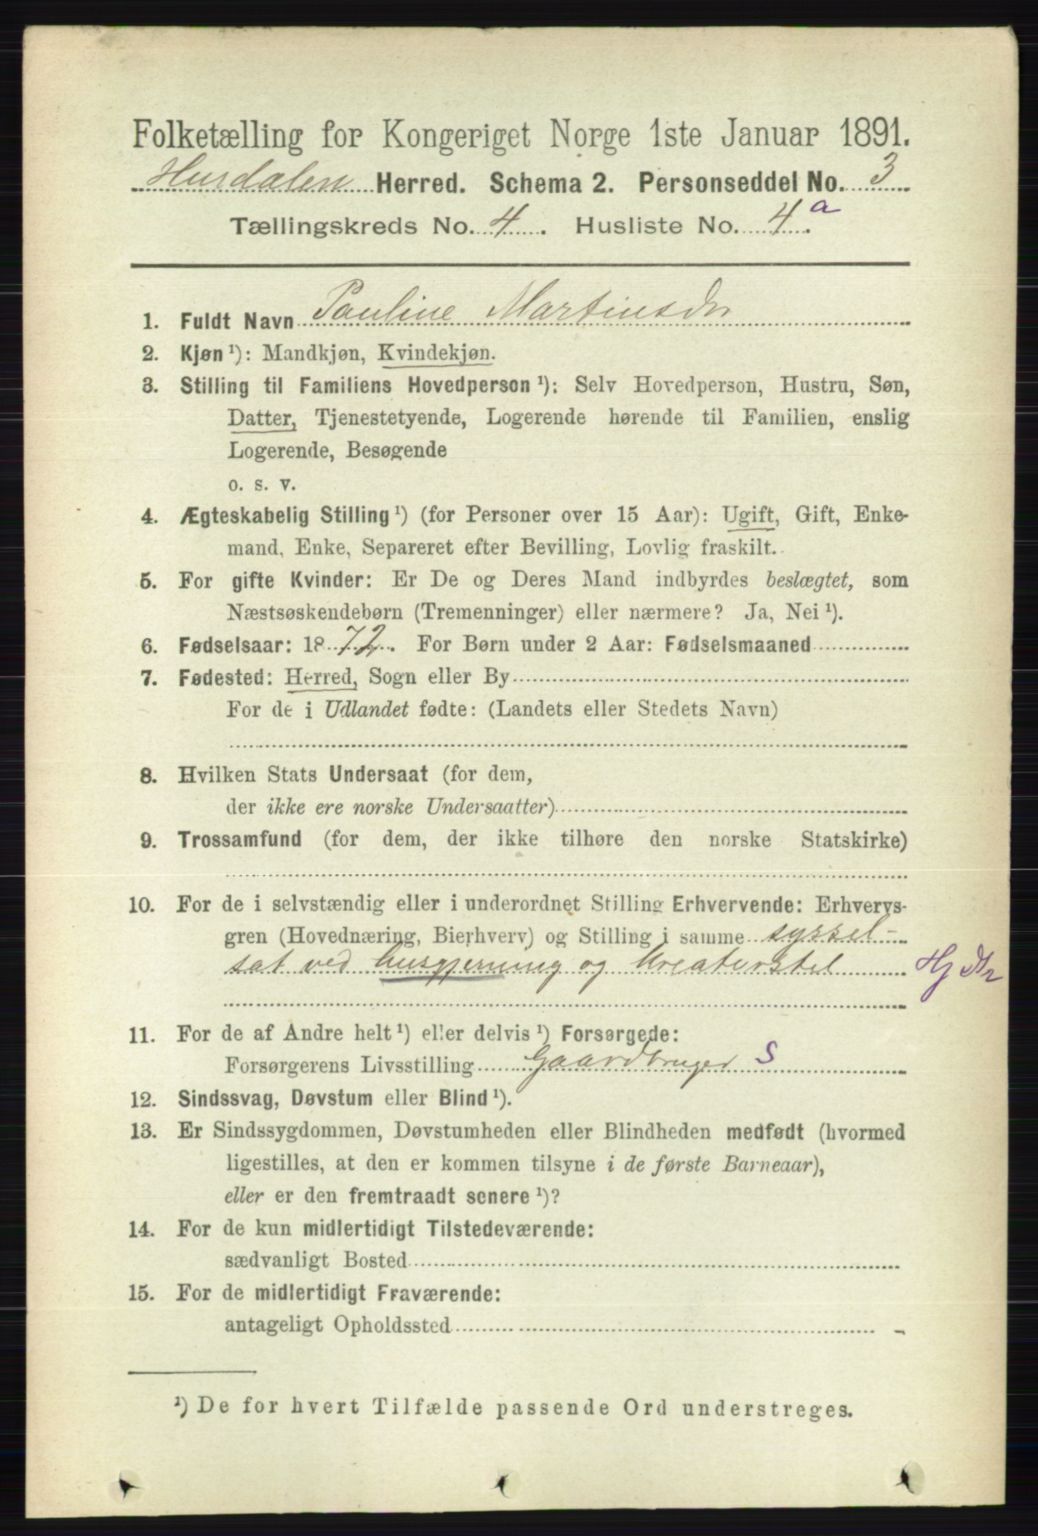 Folketælling for Kongeriget Norge 1ste Januar 1891.
Hurdalen Herred. Schema 2. Personseddel No. 3
Tællingskreds No. 4. Husliste No. 4.a
1. Fuldt Navn Pauline Martinsdr
2. Kjøn¹): Mandkjøn, Kvindekjøn.
3. Stilling til Familiens Hovedperson¹): Selv Hovedperson, Hustru, Søn,
Datter, Tjenestetyende, Logerende hørende til Familien, enslig
Logerende, Besøgende
o. s. v.
4. Ægteskabelig Stilling¹) (for Personer over 15 Aar): Ugift, Gift, Enke-
mand, Enke, Separeret efter Bevilling, Lovlig fraskilt.
5. For gifte Kvinder: Er De og Deres Mand indbyrdes beslægtet, som
Næstsøskendebørn (Tremenninger) eller nærmere? Ja, Nei¹).
6. Fødselsaar: 1872. For Børn under 2 Aar: Fødselsmaaned
7. Fødested: Herred, Sogn eller By
For de i Udlandet fødte: (Landets eller Stedets Navn)
8. Hvilken Stats Undersaat (for dem,
der ikke ere norske Undersaatter)
9. Trossamfund (for dem, der ikke tilhøre den norske Statskirke)
10. For de i selvstændig eller i underordnet Stilling Erhvervende: Erhvervs-
gren (Hovednæring, Bierhverv) og Stilling i samme syssel-
sat ved husgjerning og Kreaturstel
11. For de af Andre helt¹) eller delvis¹) Forsørgede:
Forsørgerens Livsstilling Gaardbruger S
12. Sindssvag, Døvstum eller Blind¹).
13. Er Sindssygdommen, Døvstumheden eller Blindheden medfødt (hvormed
ligestilles, at den er kommen tilsyne i de første Barneaar),
eller er den fremtraadt senere¹)?
14. For de kun midlertidigt Tilstedeværende:
sædvanligt Bosted
15. For de midlertidigt Fraværende:
antageligt Opholdssted
¹) De for hvert Tilfælde passende Ord understreges.